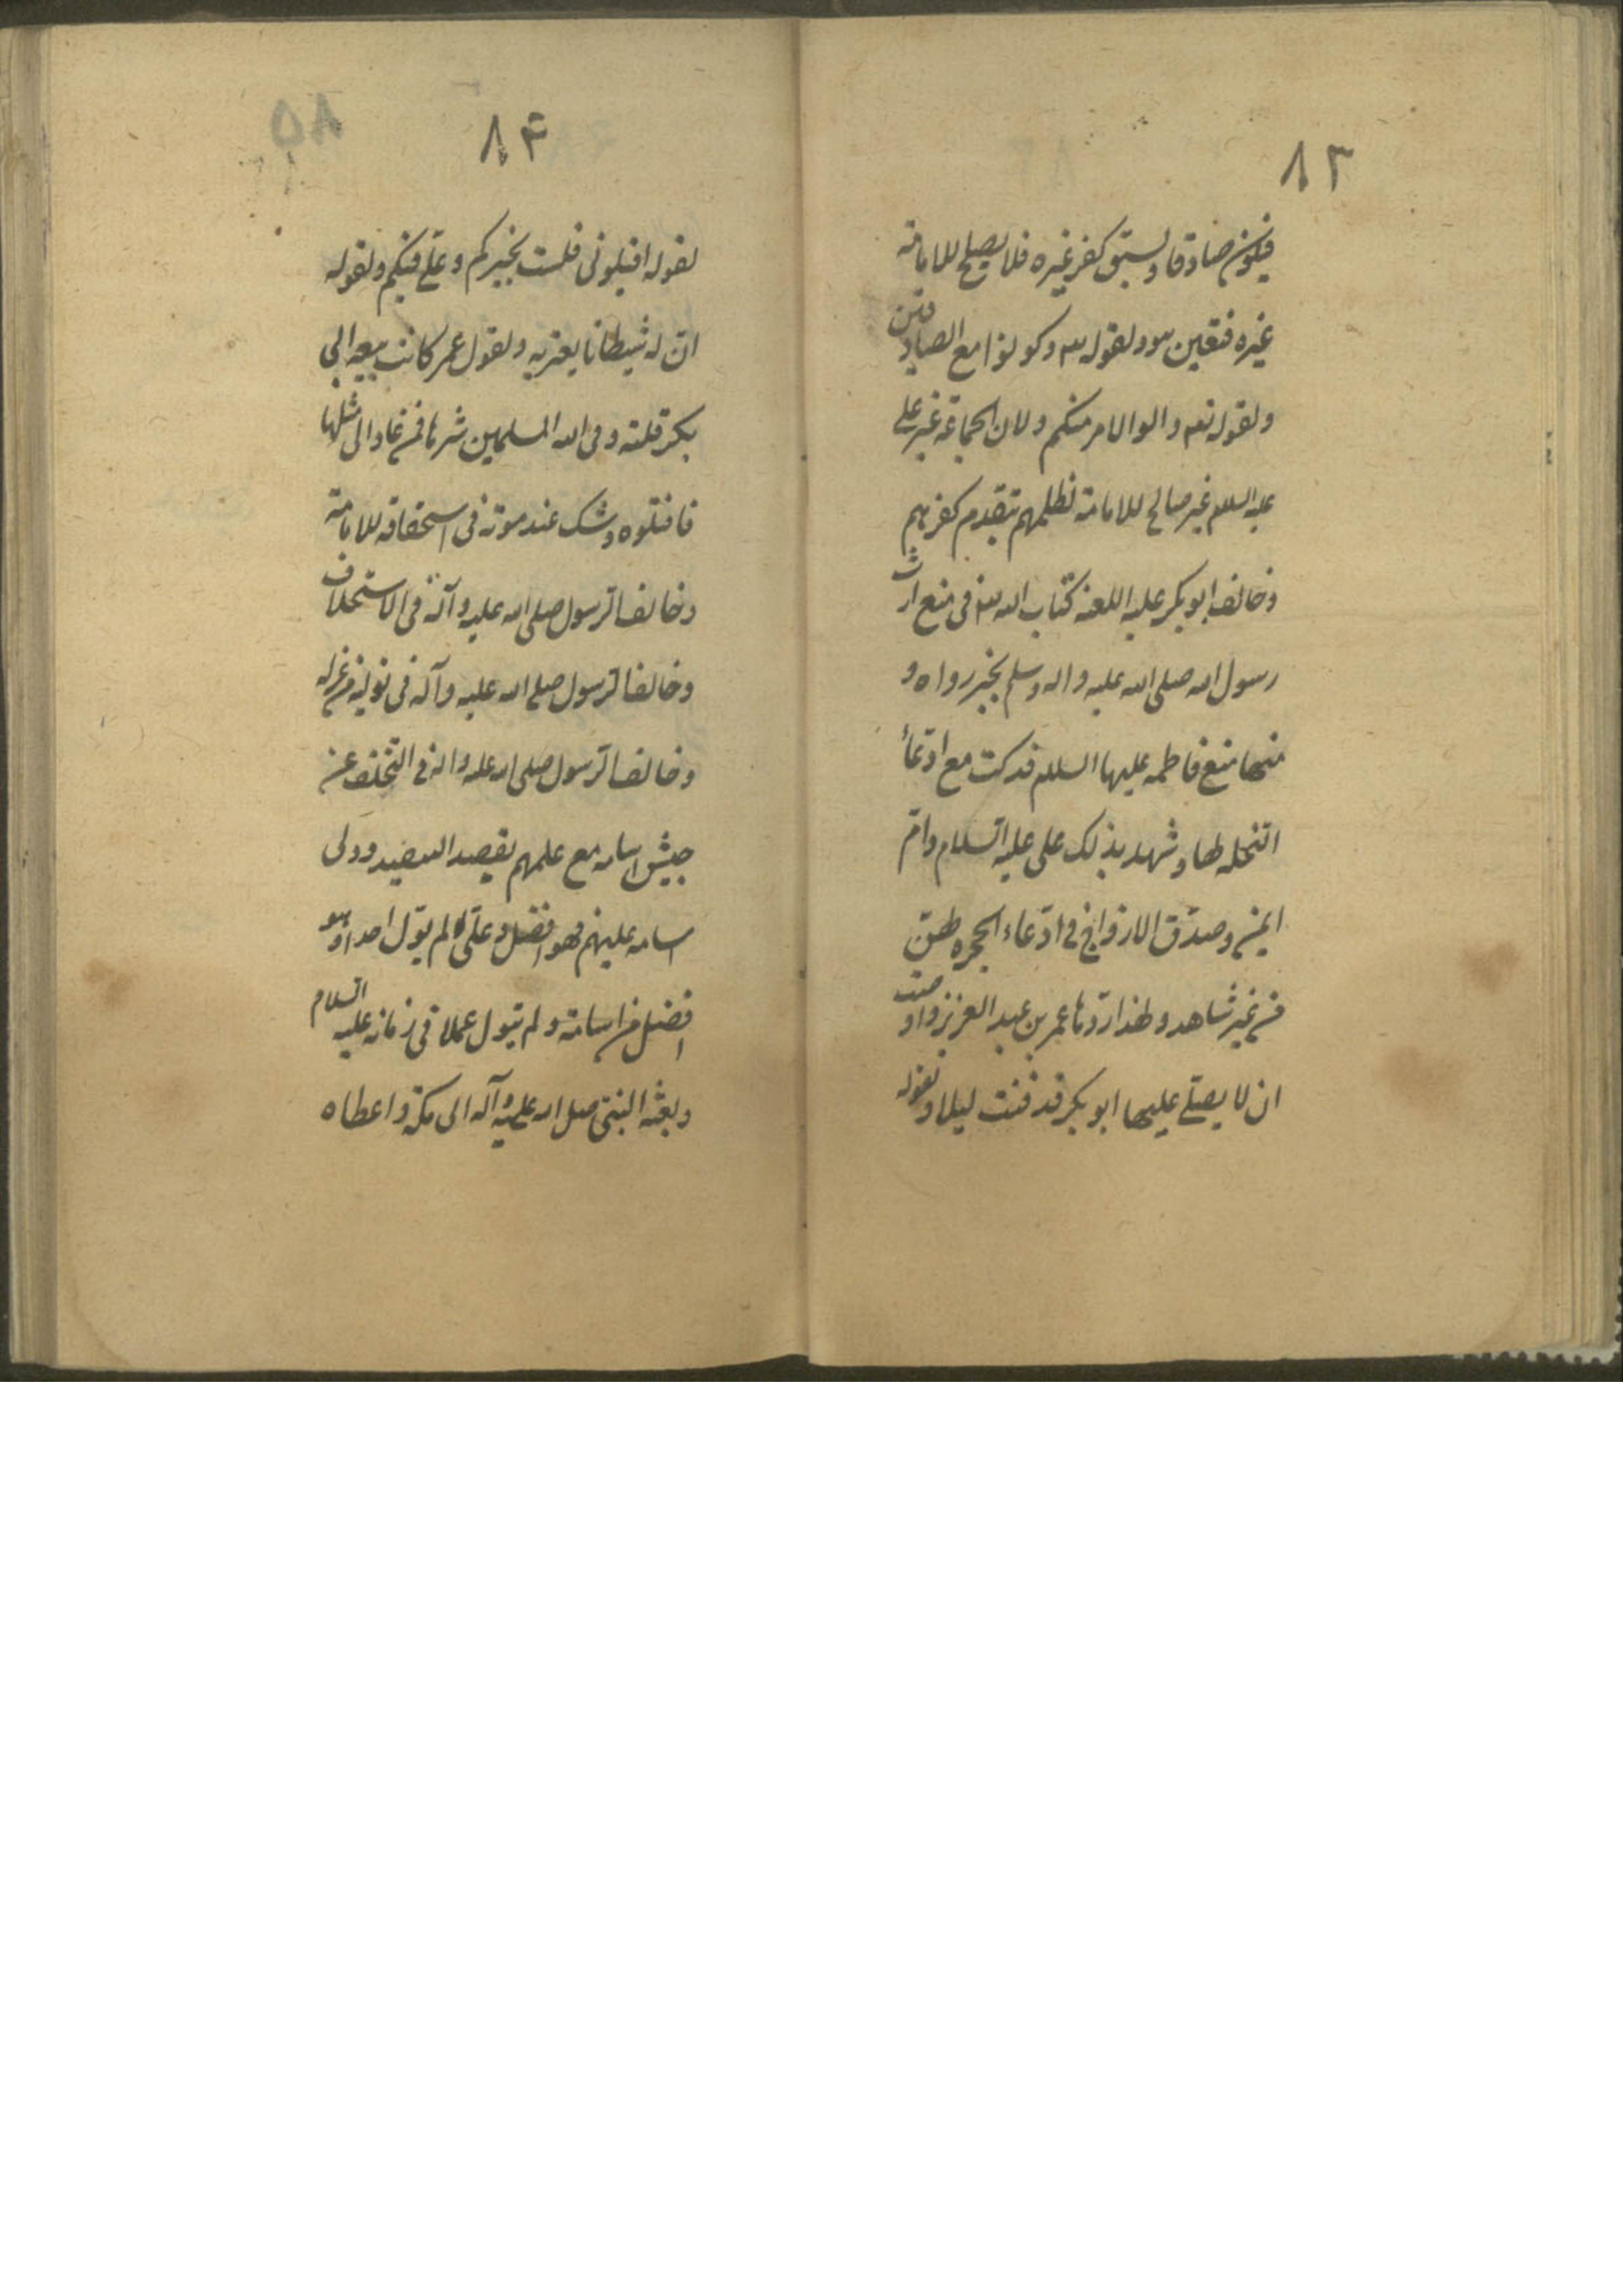 ٨٣
فیکون صادقا ولسبق کفر غیره فلا یصلح للامامة
غیره فتعین هو ولقوله تع وکونوا مع الصادقین
ولقوله تع واولوا الامر منکم ولان الجماعة غیر علی
علیه السلم غیر صالح للامامة لظلمهم بتقدم کفرهم
وخالف ابو بکر علیه اللعنه کتاب الله تع فی منع ارث
رسول الله صلی الله علیه واله وسلم بخبر رواه و
منها منع فاطمه علیها السلم فدک مع ادعاء
النحله لها وشهد بذلک علی علیه السلام وام
ایمن وصدق الازواج فی ادعاء الحجره لهن
من غیر شاهد ولهذا ردها عمر بن عبد العزیز واوصت
ان لا یصلی علیها ابو بکر فدفنت لیلا ولقوله
٨۴
لقوله اقیلونی فلست بخیرکم وعلی فیکم ولقوله
ان له شیطانا یعتریه ولقول عمر کانت بیعه ابی
بکر فلته وقی الله المسلمین شرها فمن عاد الی مثلها
فاقتلوه وشک عند موته فی استحقاقه للامامة
وخالف الرسول صلی الله علیه وآله فی الاستخلاف
وخالف الرسول صلی الله علیه وآله فی تولیه من عزله
وخالف الرسول صلی الله علیه واله فی التخلف عن
جیش اسامه مع علمهم بقصد التنفیذ وولی
اسامه علیهم فهو افضل وعلی لم یول احدا وهو
افضل من اسامة ولم یتول عملا فی زمانه علیه السلام
وبعثه النبی صلی الله علیه وآله الی مکة واعطاه